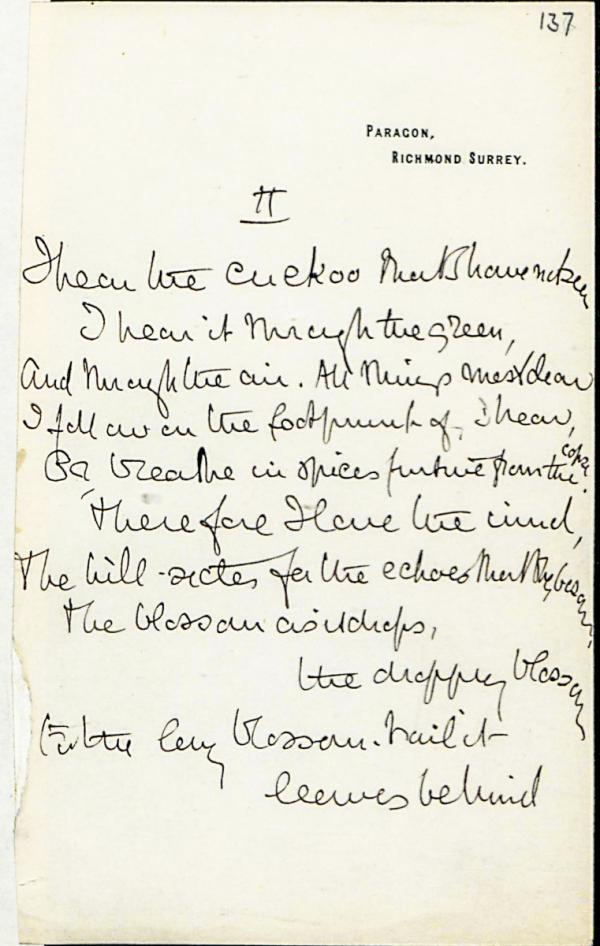 137
PARAGON,
RICHMOND SURREY.
II
I hear the cuckoo that I have not seen
I hear it through the green,
And through the air. All things most dear
I follow on the footprint of, I hear,
Or, breathe in spices furtive from the copse.
Therefore I love the wind,
The hill-sides for the echoes that they
The blossom as it drops,
the dropping blossom
For the long blossom-trail it
leaves behind